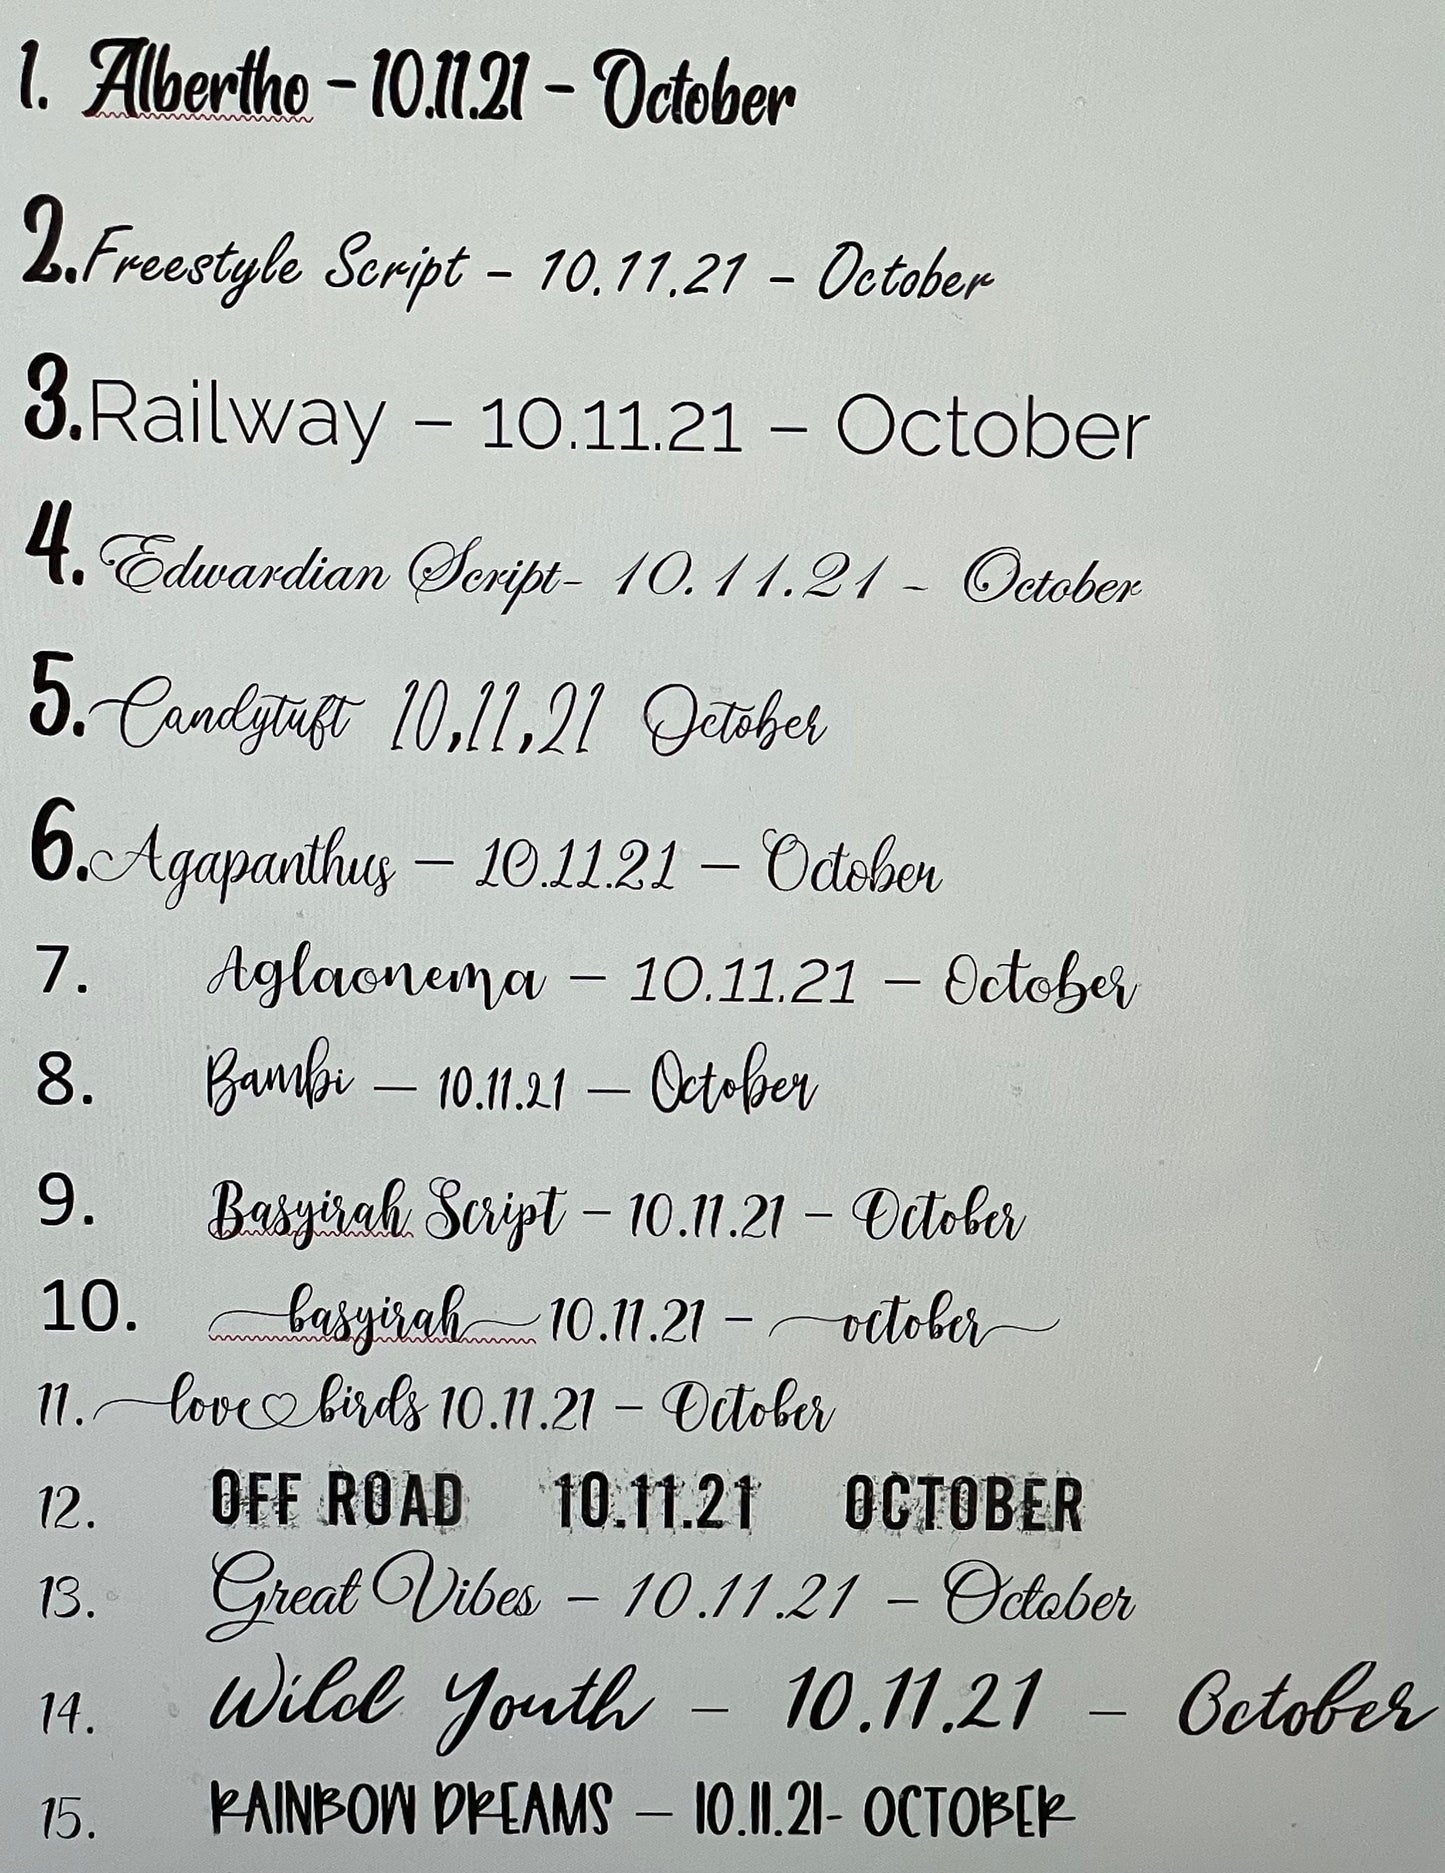 1. Albertho – 10.11.21 – October
2. Freestyle Script – 10.11.21 – October
3. Railway – 10.11.21 – October
4. Edwardian Script- 10.11.21 – October
5. Candytuft 10,11,21 October
6. Agapanthus – 10.11.21 – October
7. Aglaonema – 10.11.21 – October
8. Bambi – 10.11.21 – October
9. Basyirah Script – 10.11.21 – October
10. basyirah 10.11.21 – october
11. love♡birds 10.11.21 – October
12. OFF ROAD 10.11.21 OCTOBER
13. Great Vibes – 10.11.21 – October
14. Wild Youth – 10.11.21 – October
15. RAINBOW DREAMS – 10.11.21- OCTOBER